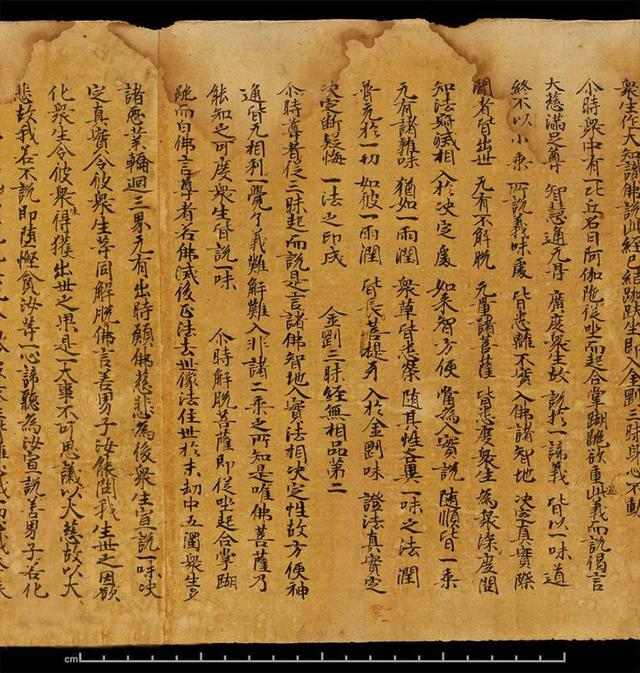 衆生作大知識佛說此經已結跏趺坐即入金剛三昧身心不動
尒時衆中有一比丘名曰阿伽陀從坐而起合掌䠒跪欲重宣此義而說偈言
大慈滿足尊 智慧通无㝵 廣度衆生故 說於一諦義 皆以一味道
終不以小乘 所說義味處 皆悉離不實 入佛諸智地 决定真實際
聞者皆出世 无有不解脫 无量諸菩薩 皆悉度衆生 為衆深廣問
知法寂滅相 入於决定處 如來智方便 當為入實說 隨順皆一乘
无有諸雜味 猶如一雨潤 衆草皆悉榮 隨其性各異 一味之法潤
普充於一切 如彼一雨潤 皆長菩提牙 入於金剛味 證法真實定
决定斷疑悔 一法之印成 金剛三昧經無相品第二
尒時尊者從三昧起而說是言諸佛智地入實法相决定性故方便神
通皆无相利一覺了義難解難入非諸二乘之所知是唯佛菩薩乃
能知之可度衆生皆說一味 尒時解脫菩薩即從坐起合掌䠒
跪而白佛言尊者若佛滅後正法去世像法住世於末劫中五濁衆生多
諸惡業輪迴三界无有出時願佛慈悲為後衆生宣說一味决
定真實令彼衆生等同解脫佛言善男子汝能問我出世之因欲
化衆生令彼衆生得獲出世之果是一大事不可思議以大慈故以大
悲故我若不說即墮慳貪汝等一心諦聽為汝宣說善男子若化